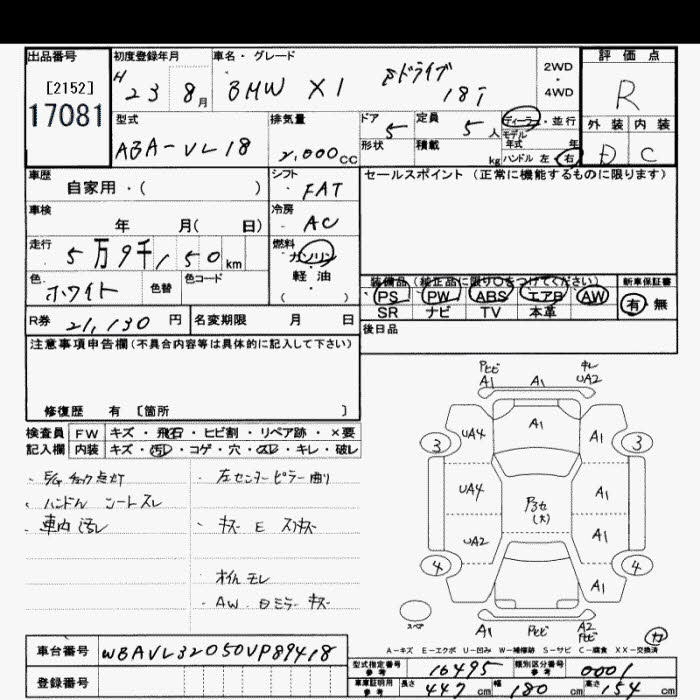 出品番号
[2152]
17081
初度登録年月
H 23 8月
車名・グレード
BMW X1 sドライブ 18i
2WD
・
4WD
評価点
R
外装 内装
D C
型式
ABA-VL18
排気量
2,000CC
ドア
5
定員
5人
形状
積載
kg
ディーラー・並行
モデル年式 年
ハンドル 左・右
車歴
自家用・( )
シフト
FAT
セールスポイント(正常に機能するものに限ります)
車検
年 月( 日)
冷房
AC
走行
5万9千,150km
燃料
ガソリン
軽油
( )
色
ホワイト
色替
色コード
装備品(純正品に限り○をつけてください)
PS PW ABS エアB AW
SR ナビ TV 本革
新車保証書
有・無
R券 21,130円
名変期限 月 日
後日品
注意事項申告欄(不具合内容等は具体的に記入して下さい)
修復歴 有 [箇所 ]
検査員 FW キズ・飛石・ヒビ割・リペア跡・×要
記入欄 内装 キズ・汚レ・コゲ・穴・スレ・キレ・破レ
・E/Gチェック点灯
・ハンドル シートスレ
・車内汚レ
・左センターピラー曲り
・キズ E スリキズ
オイルモレ
・AW、ミラーキズ
Pヒビ
A1
A1
キレ
UA2
UA4
A1
A1
3
3
UA4
A1
Pヨセ
(大)
UA2
A1
4
4
A1
スペア
A1
Pヒビ
A2
Pヒビ
A-キズ E-エクボ U-凹み W-補修跡 S-サビ C-腐食 XX-交換済
車台番号 WBAVL32050VP89418
登録番号
型式指定番号
参考
16495
類別区分番号
参考
0001
車庫証明用
参考
長さ 447cm 幅 180cm 高さ 154cm